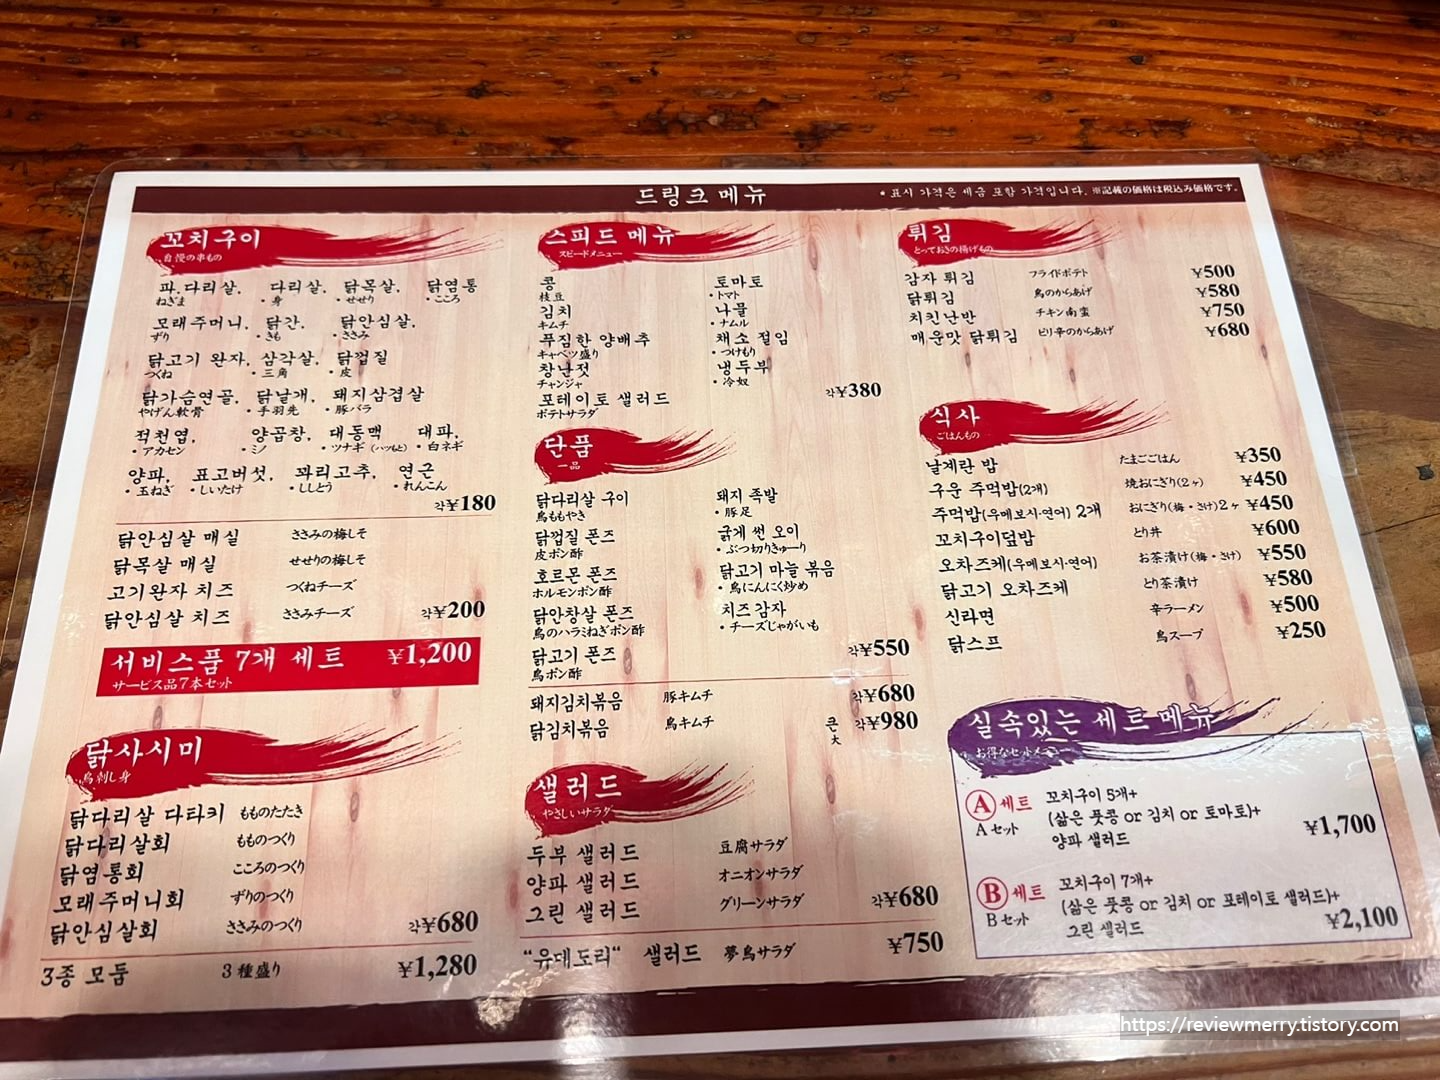 드링크 메뉴
* 표시 가격은 세금 포함 가격입니다. ※記載の価格は税込み価格です。
꼬치구이
自慢の串もの
파.다리살, 다리살, 닭목살, 닭염통
ねぎま ・身 ・せせり ・こころ
모래주머니, 닭간, 닭안심살,
ずり ・きも ・ささみ
닭고기 완자, 삼각살, 닭껍질
つくね ・三角 ・皮
닭가슴연골, 닭날개, 돼지삼겹살
やげん軟骨 ・手羽先 ・豚バラ
적천엽, 양곱창, 대동맥 대파,
・アカセン ・ミノ ・ツナギ (ハツもと) ・白ネギ
양파, 표고버섯, 꽈리고추, 연근
・玉ねぎ ・しいたけ ・ししとう ・れんこん
각¥180
닭안심살 매실 ささみの梅しそ
닭목살 매실 せせりの梅しそ
고기완자 치즈 つくねチーズ
닭안심살 치즈 ささみチーズ 각¥200
서비스품 7개 세트 ¥1,200
サービス品7本セット
닭사시미
鳥刺し身
닭다리살 다타키 もものたたき
닭다리살회 もものつくり
닭염통회 こころのつくり
모래주머니회 ずりのつくり
닭안심살회 ささみのつくり 각¥680
3종 모둠 3種盛り ¥1,280
스피드 메뉴
スピードメニュー
콩 토마토
枝豆 ・トマト
김치 나물
キムチ ・ナムル
푸짐한 양배추 채소 절임
キャベツ盛り ・つけもり
창난젓 냉두부
チャンジャ ・冷奴
각¥380
포테이토 샐러드
ポテトサラダ
단품
一品
닭다리살 구이 돼지 족발
鳥ももやき ・豚足
닭껍질 폰즈 굵게 썬 오이
皮ポン酢 ・ぶつ切りきゅーり
호르몬 폰즈 닭고기 마늘 볶음
ホルモンポン酢 ・鳥にんにく炒め
닭안창살 폰즈 치즈감자
鳥のハラミねぎポン酢 ・チーズじゃがいも
닭고기 폰즈 각¥550
鳥ポン酢
돼지김치볶음 豚キムチ 각¥680
닭김치볶음 鳥キムチ 큰 각¥980
大
샐러드
やさしいサラダ
두부 샐러드 豆腐サラダ
양파 샐러드 オニオンサラダ
그린 샐러드 グリーンサラダ 각¥680
“유메도리“ 샐러드 夢鳥サラダ ¥750
튀김
とっておきの揚げもの
감자 튀김 フライドポテト ¥500
닭튀김 鳥のからあげ ¥580
치킨난반 チキン南蛮 ¥750
매운맛 닭튀김 ピリ辛のからあげ ¥680
식사
ごはんもの
날계란 밥 たまごごはん ¥350
구운 주먹밥(2개) 焼おにぎり(2ヶ) ¥450
주먹밥(우메보시·연어) 2개 おにぎり(梅・さけ)2ヶ ¥450
꼬치구이덮밥 とり丼 ¥600
오차즈케(우메보시·연어) お茶漬け(梅・さけ) ¥550
닭고기 오차즈케 とり茶漬け ¥580
신라면 辛ラーメン ¥500
닭스프 鳥スープ ¥250
실속있는 세트 메뉴
お得なセットメニュー
A 세트 꼬치구이 5개+
A セット (삶은 풋콩 or 김치 or 토마토)+ ¥1,700
양파 샐러드
B 세트 꼬치구이 7개+
B セット (삶은 풋콩 or 김치 or 포테이토 샐러드)+
그린 샐러드 ¥2,100
https://reviewmerry.tistory.com